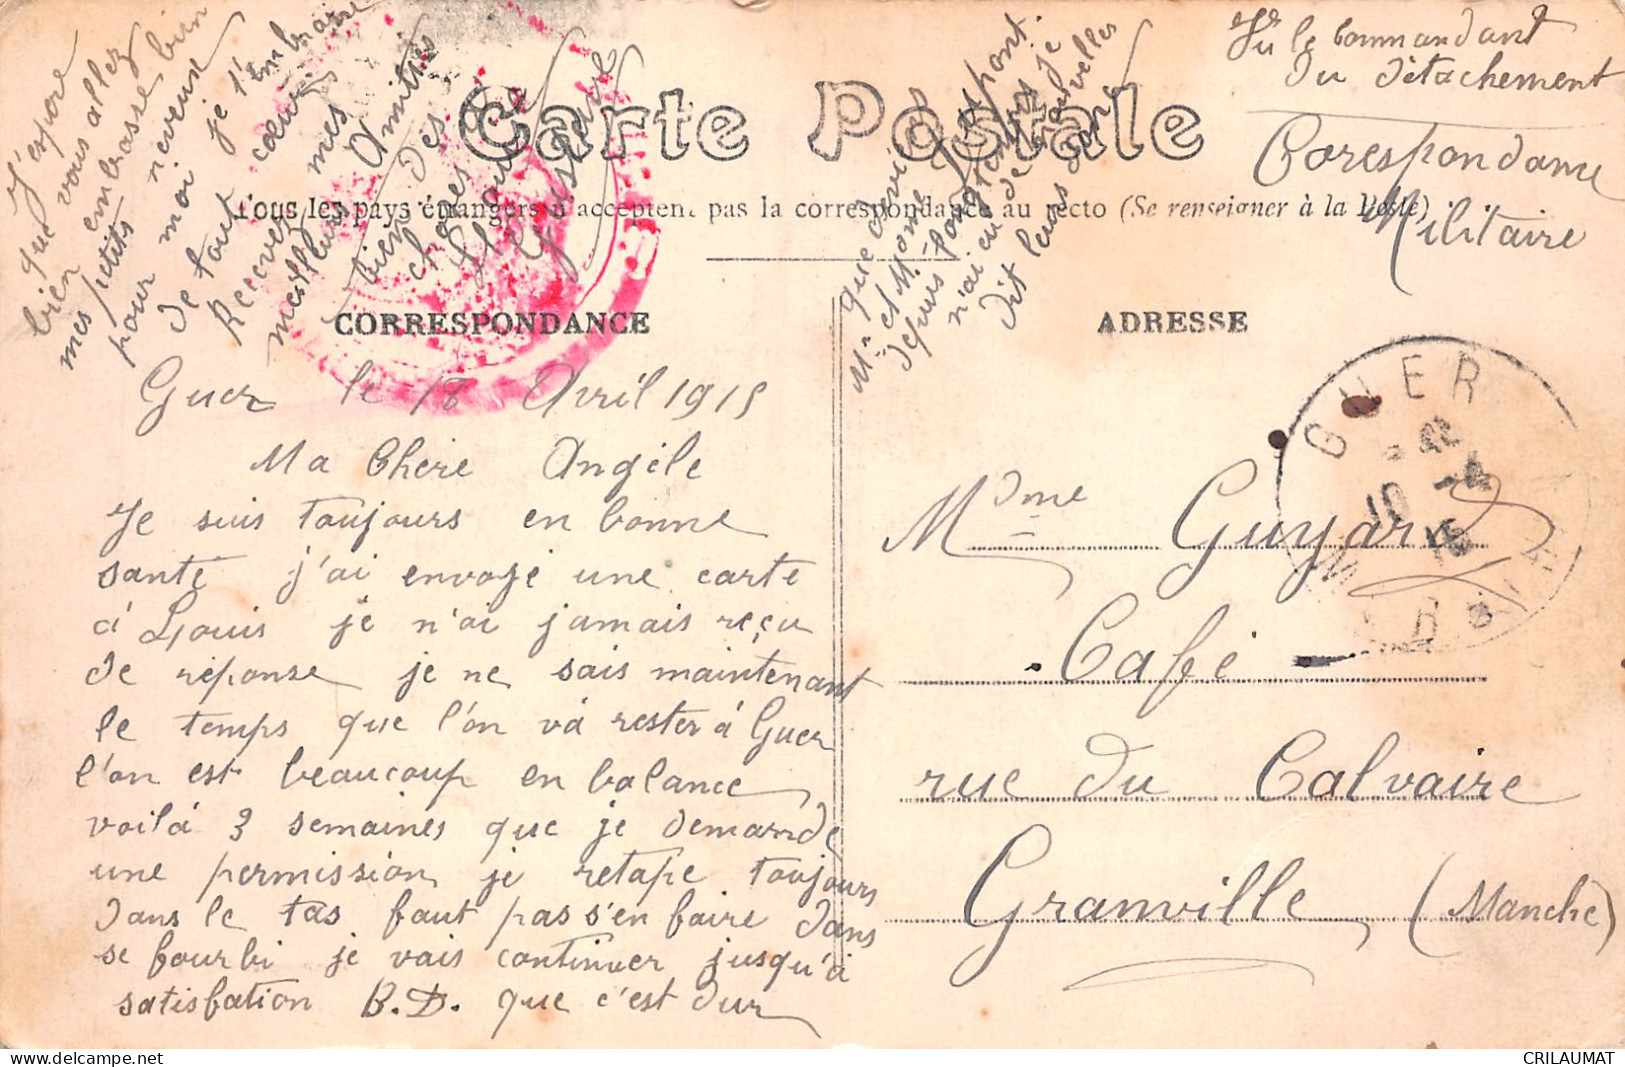 Carte Postale
Tous les pays étrangers n'acceptent pas la correspondance au recto (Se renseigner à la Poste)
CORRESPONDANCE
ADRESSE
Vu le Commandant
du détachement
Corespondance
Militaire
Guer le 18 Avril 1915
Ma Chere Angèle
Je suis toujours en bonne
santé j'ai envoyé une carte
à Louis je n'ai jamais reçu
de réponse je ne sais maintenant
le temps que l'on va rester à Guer
l'on est beaucoup en balance
voilà 3 semaines que je demande
une permission je retape toujours
dans le tas faut pas s'en faire dans
se fourbi je vais continuer jusqu'à
satisfation B.D. que c'est dur
J'espere
que vous allez
bien embrasse bien
mes petits neveux
pour moi je t'embrasse
de tout cœur
Recevez mes
meilleurs Amitiés
bien des
choses à
Louise
Gustave
que devient
Mr et Mme Dupont
depuis longtemps je
n'ai eu de nouvelles
dit leurs donc
Mdme Guyard
Café
rue du Calvaire
Granville (Manche)
GUER
MORBIHAN
CRILAUMAT